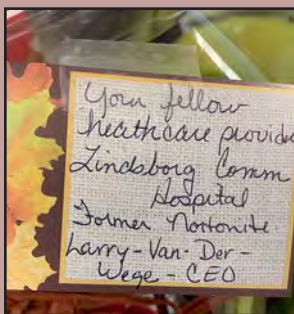 Your fellow
heathcare provide
Lindsborg Comm
Hospital
Former Nortonite
Larry-Van-Der-
Wege - CEO